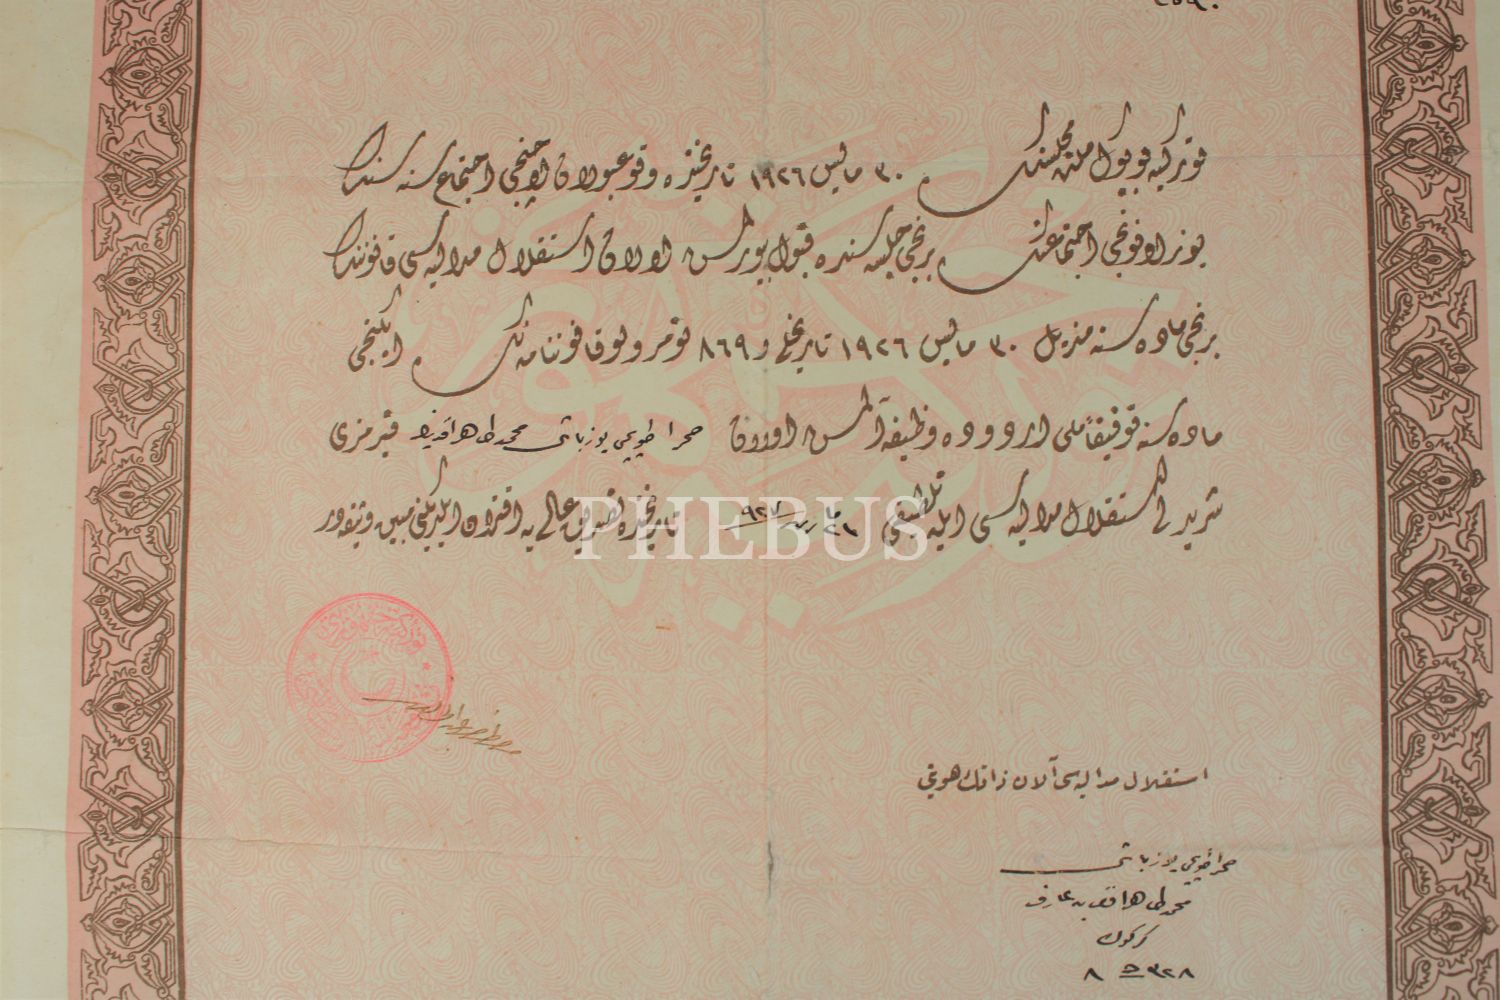 ٢٥٩٠
توركيه بويوك ملت مجلسنك ٣٠ مايس ١٩٢٦ تاريخنده وقوعبولان اوچنجى اجتماع سنه سنك
يوز اونونجى اجتماعنك برنجى جلسه سنده قبول بيورلمش اولان استقلال مداليه سى قانوننك
برنجى ماده سنه مذيل ٣٠ مايس ١٩٢٦ تاريخلى و ٨٦٩ نومرولو قانوننامه نك ايكنجى
ماده سنه توفيقاً ملى اردوده وظيفه آلمش اولان صحرا طوپجى يوزباشى محمد طاهر افندينك قيرمزى
شريدلى استقلال مداليه سى ايله تلطيفى ٢١ مارت ٩٢٧ تاريخنده تصديق عالى يه اقتران ايلديكنى مبين وثيقه در
PHEBUS
استقلال مداليه سى آلان ذاتك هويتى
صحرا طوپجى يوزباشى
محمد طاهر افندى بن عارف
كركوك
٣٢٨ ح ٨